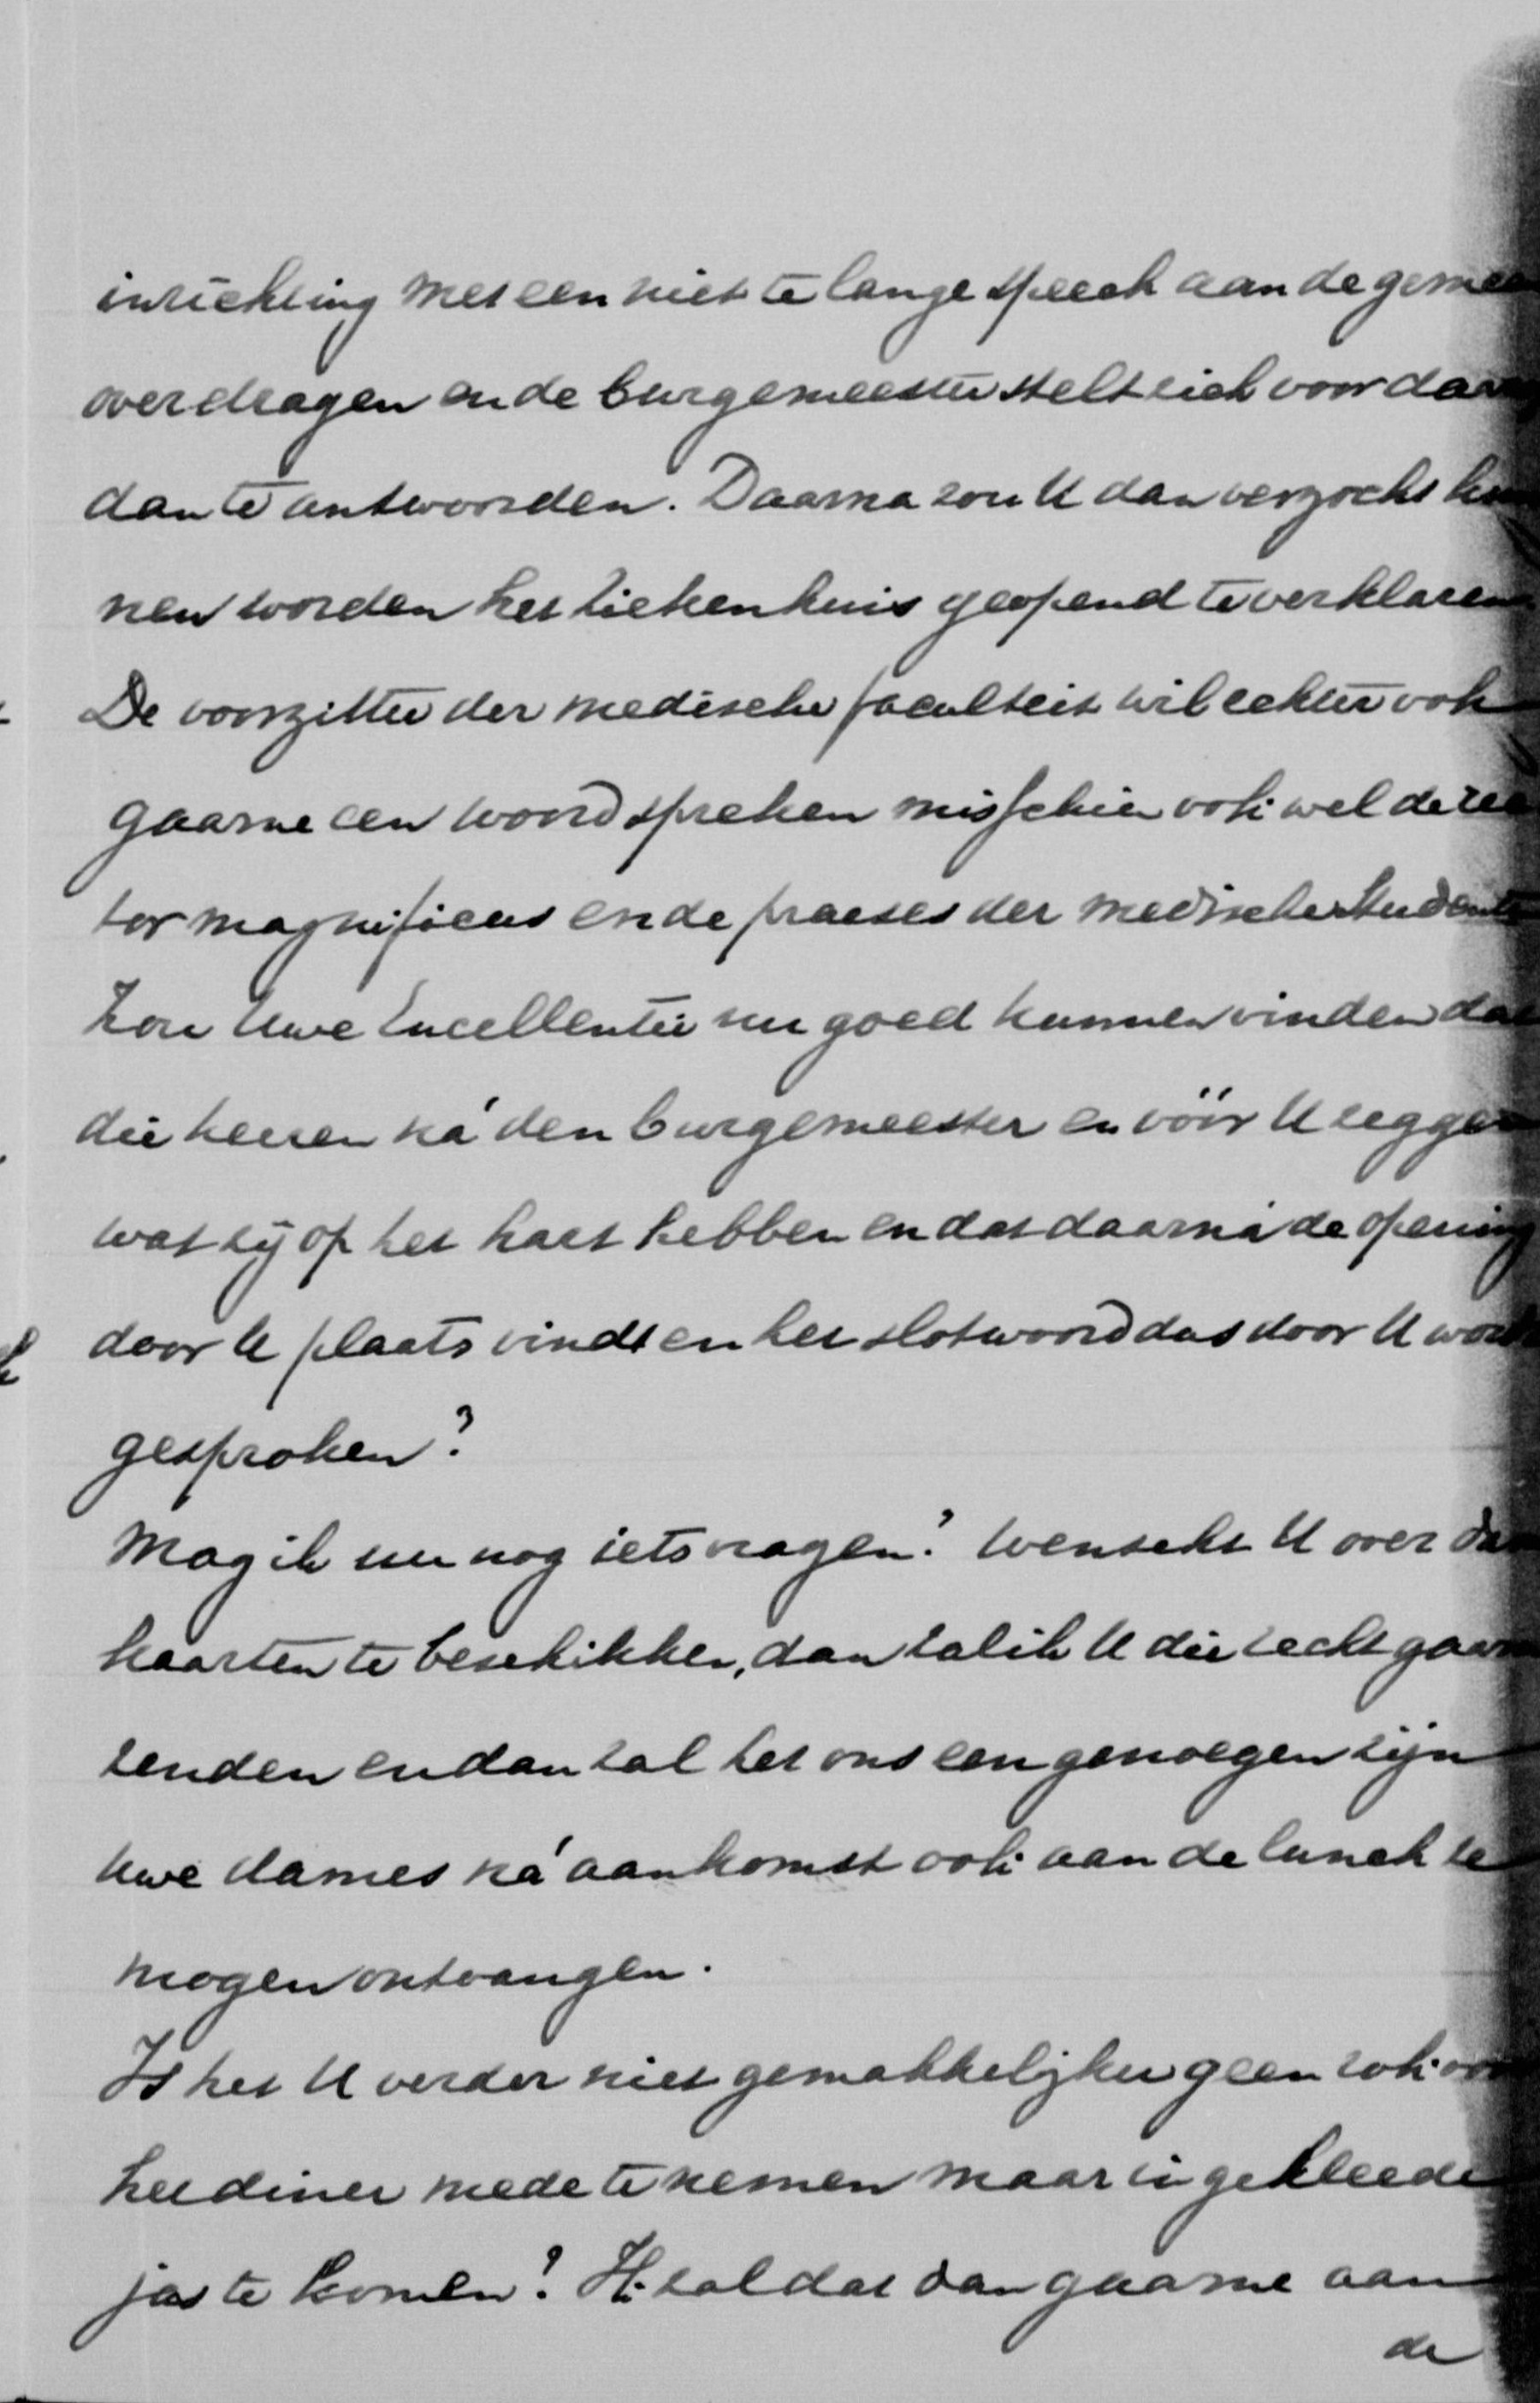 inrichting met een niet te lange speech aan de gemee
overdragen en de burgemeester stelt zich voor daar
dan te antwoorden. Daarna zou U dan verzocht kun
nen worden het ziekenhuis geopend te verklaren
De voorzitter der medische faculteit wil echter ook
gaarne een woord spreken misschien ook wel de rec
tor magnificus en de praeses der medische Studente
Zou Uwe Excellentie nu goed kunnen vinden dat
die heeren ná den burgemeester en vóór U zeggen
wat zij op het hart hebben en dat daarná de opening
door U plaats vindt en het slotwoord dus door U word
gesproken?
Mag ik nu nog iets vragen? Wenscht U over da
kaarten te beschikken, dan zal ik U die recht gaarn
zenden en dan zal het ons een genoegen zijn
Uwe dames ná aankomst ook aan de lunch te
mogen ontvangen.
Is het U verder niet gemakkelijker geen rok voor
het diner mede te nemen maar in gekleede
jas te komen? Ik zal dat dan gaarne aan
de